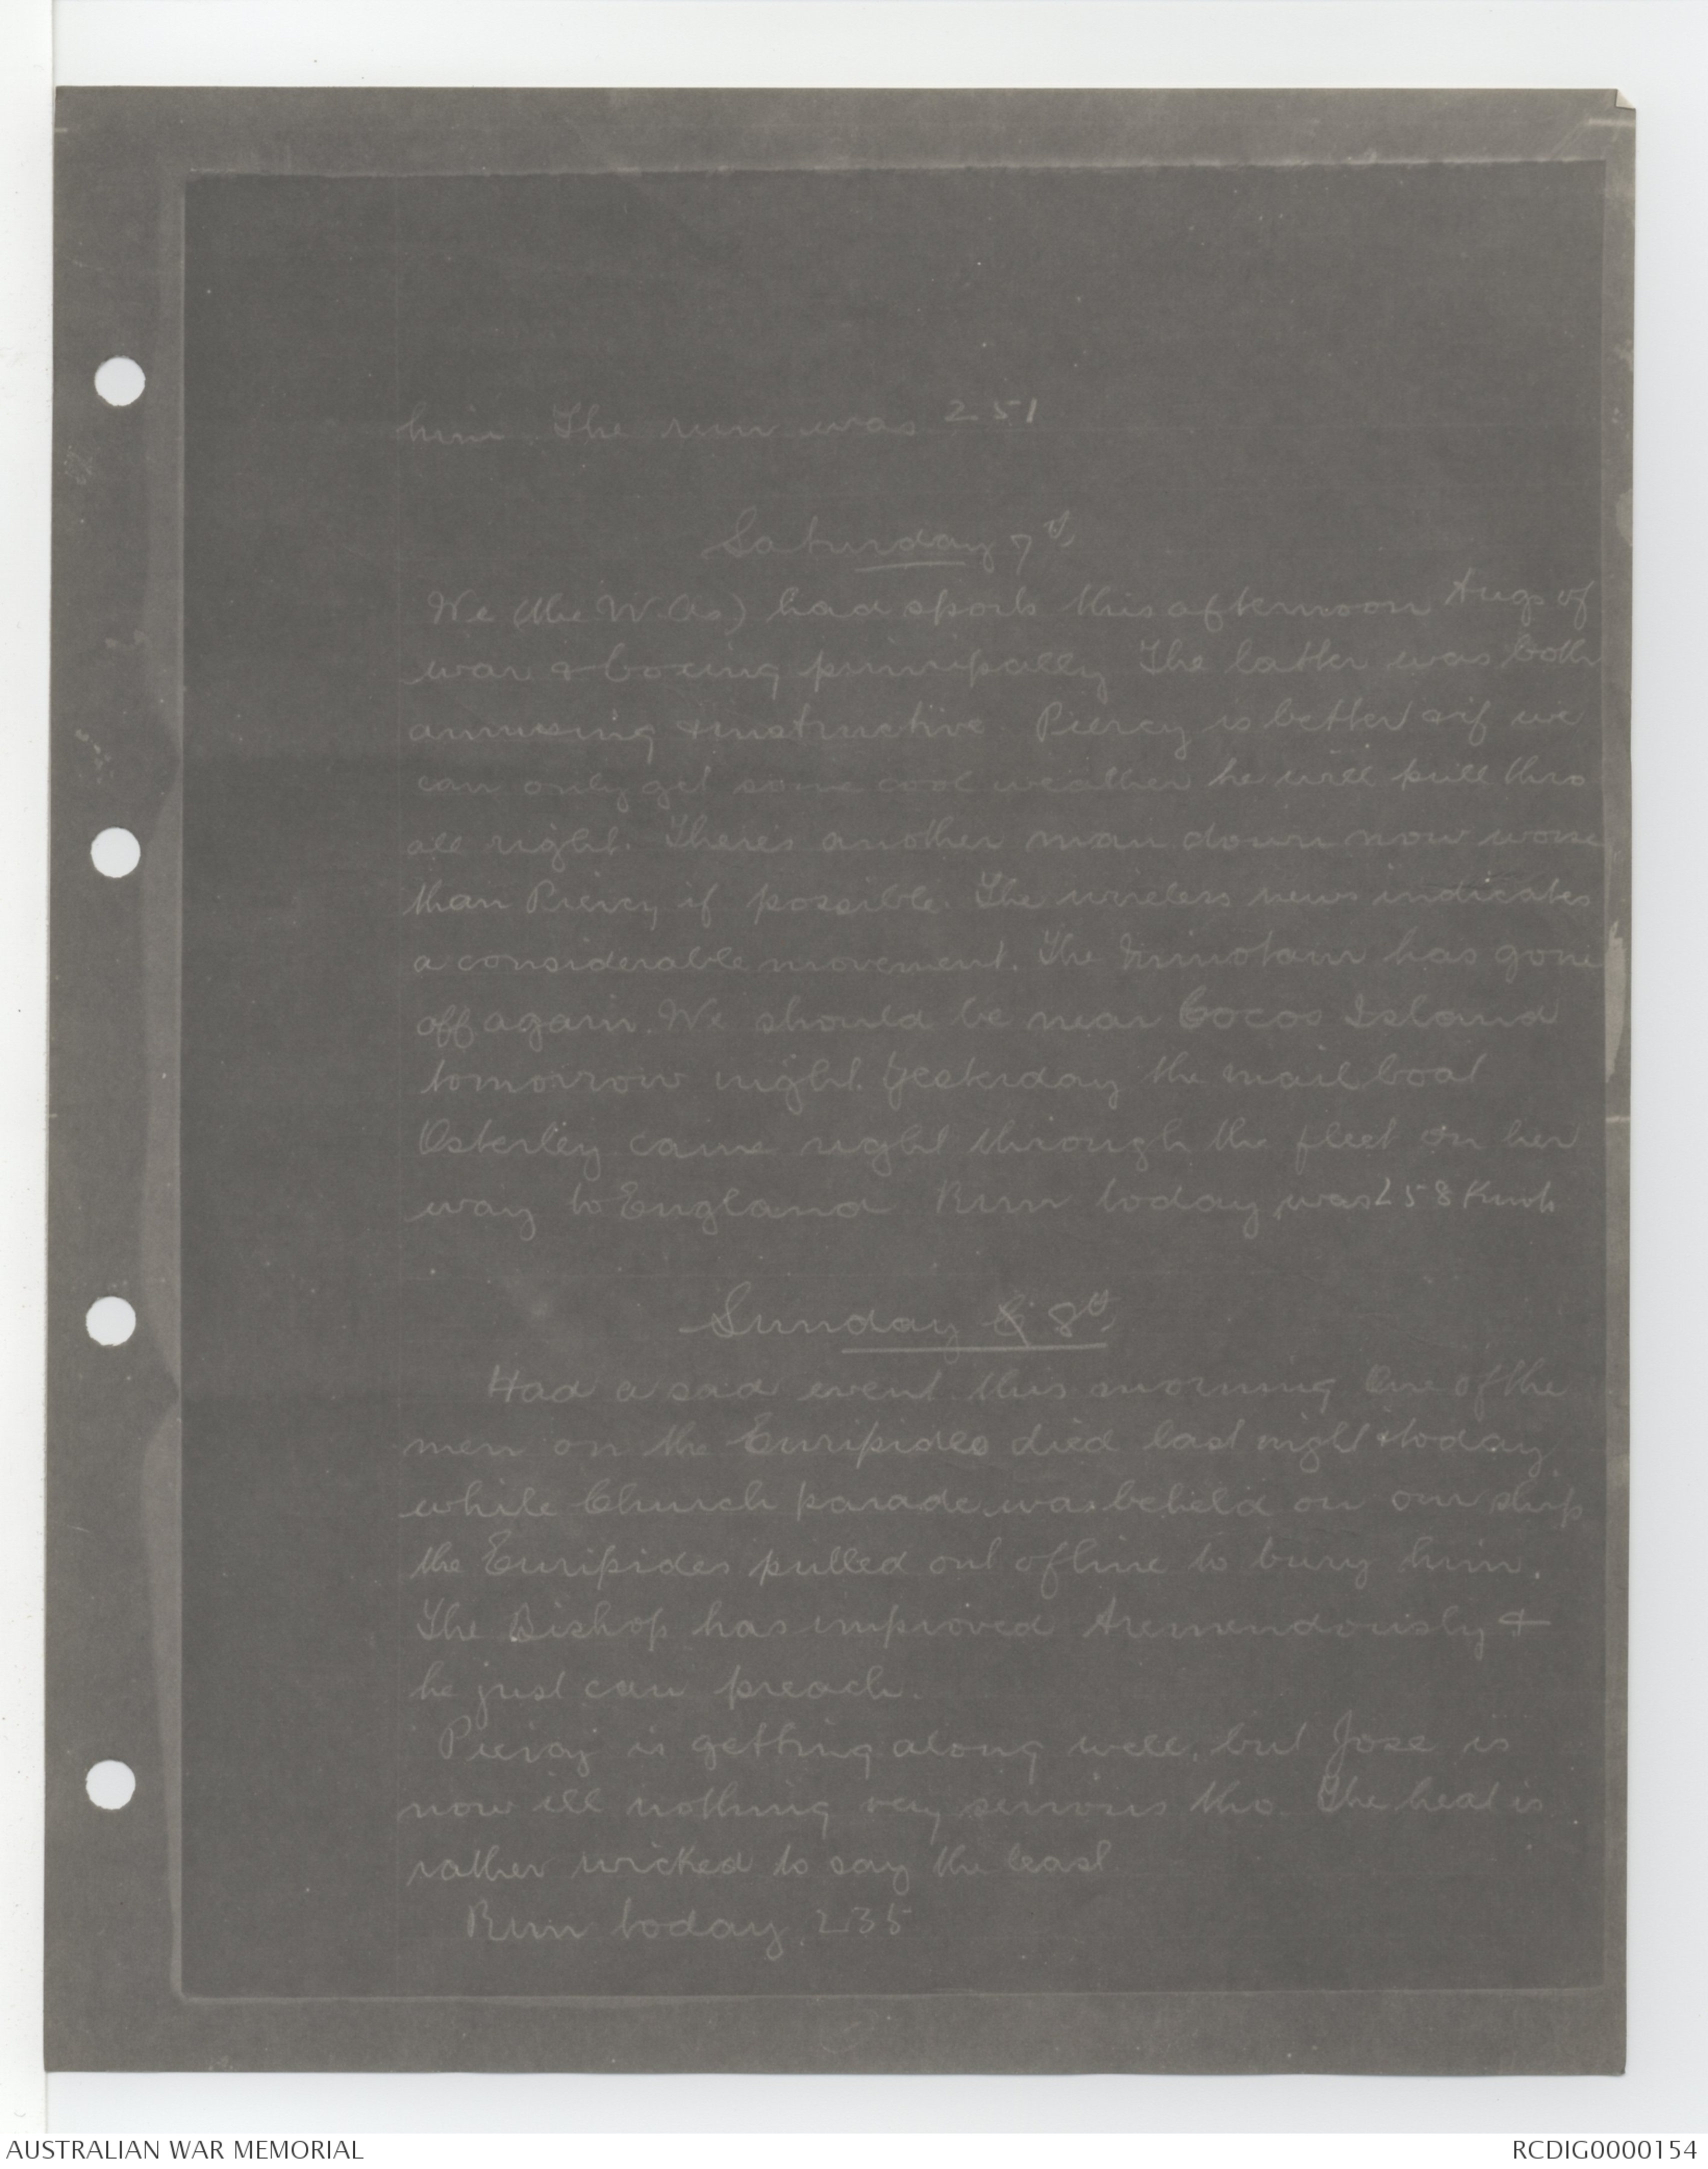 him. The run was 251
Saturday 7th
We (the W.As) had sports this afternoon tugs of
war & boxing principally The latter was both
amusing & instructive. Piercy is better & if we
can only get some cool weather he will pull thro
all right. There's another man down now worse
than Piercy if possible. The wireless news indicates
a considerable movement. The Minotaur has gone
off again. We should be near Cocos Island
tomorrow night. Yesterday the mail boat
Osterley came right through the fleet on her
way to England. Run today was 258 Knots
Sunday 8th
Had a sad event this morning One of the
men on the Euripides died last night & today
while Church parade was beheld on our ship
the Euripides pulled out of line to bury him.
The Bishop has improved tremendously &
he just can preach.
Piercy is getting along well, but Jose is
now ill nothing very serious tho. The heat is
rather wicked to say the least
Run today 235
AUSTRALIAN WAR MEMORIAL
RCDIG0000154